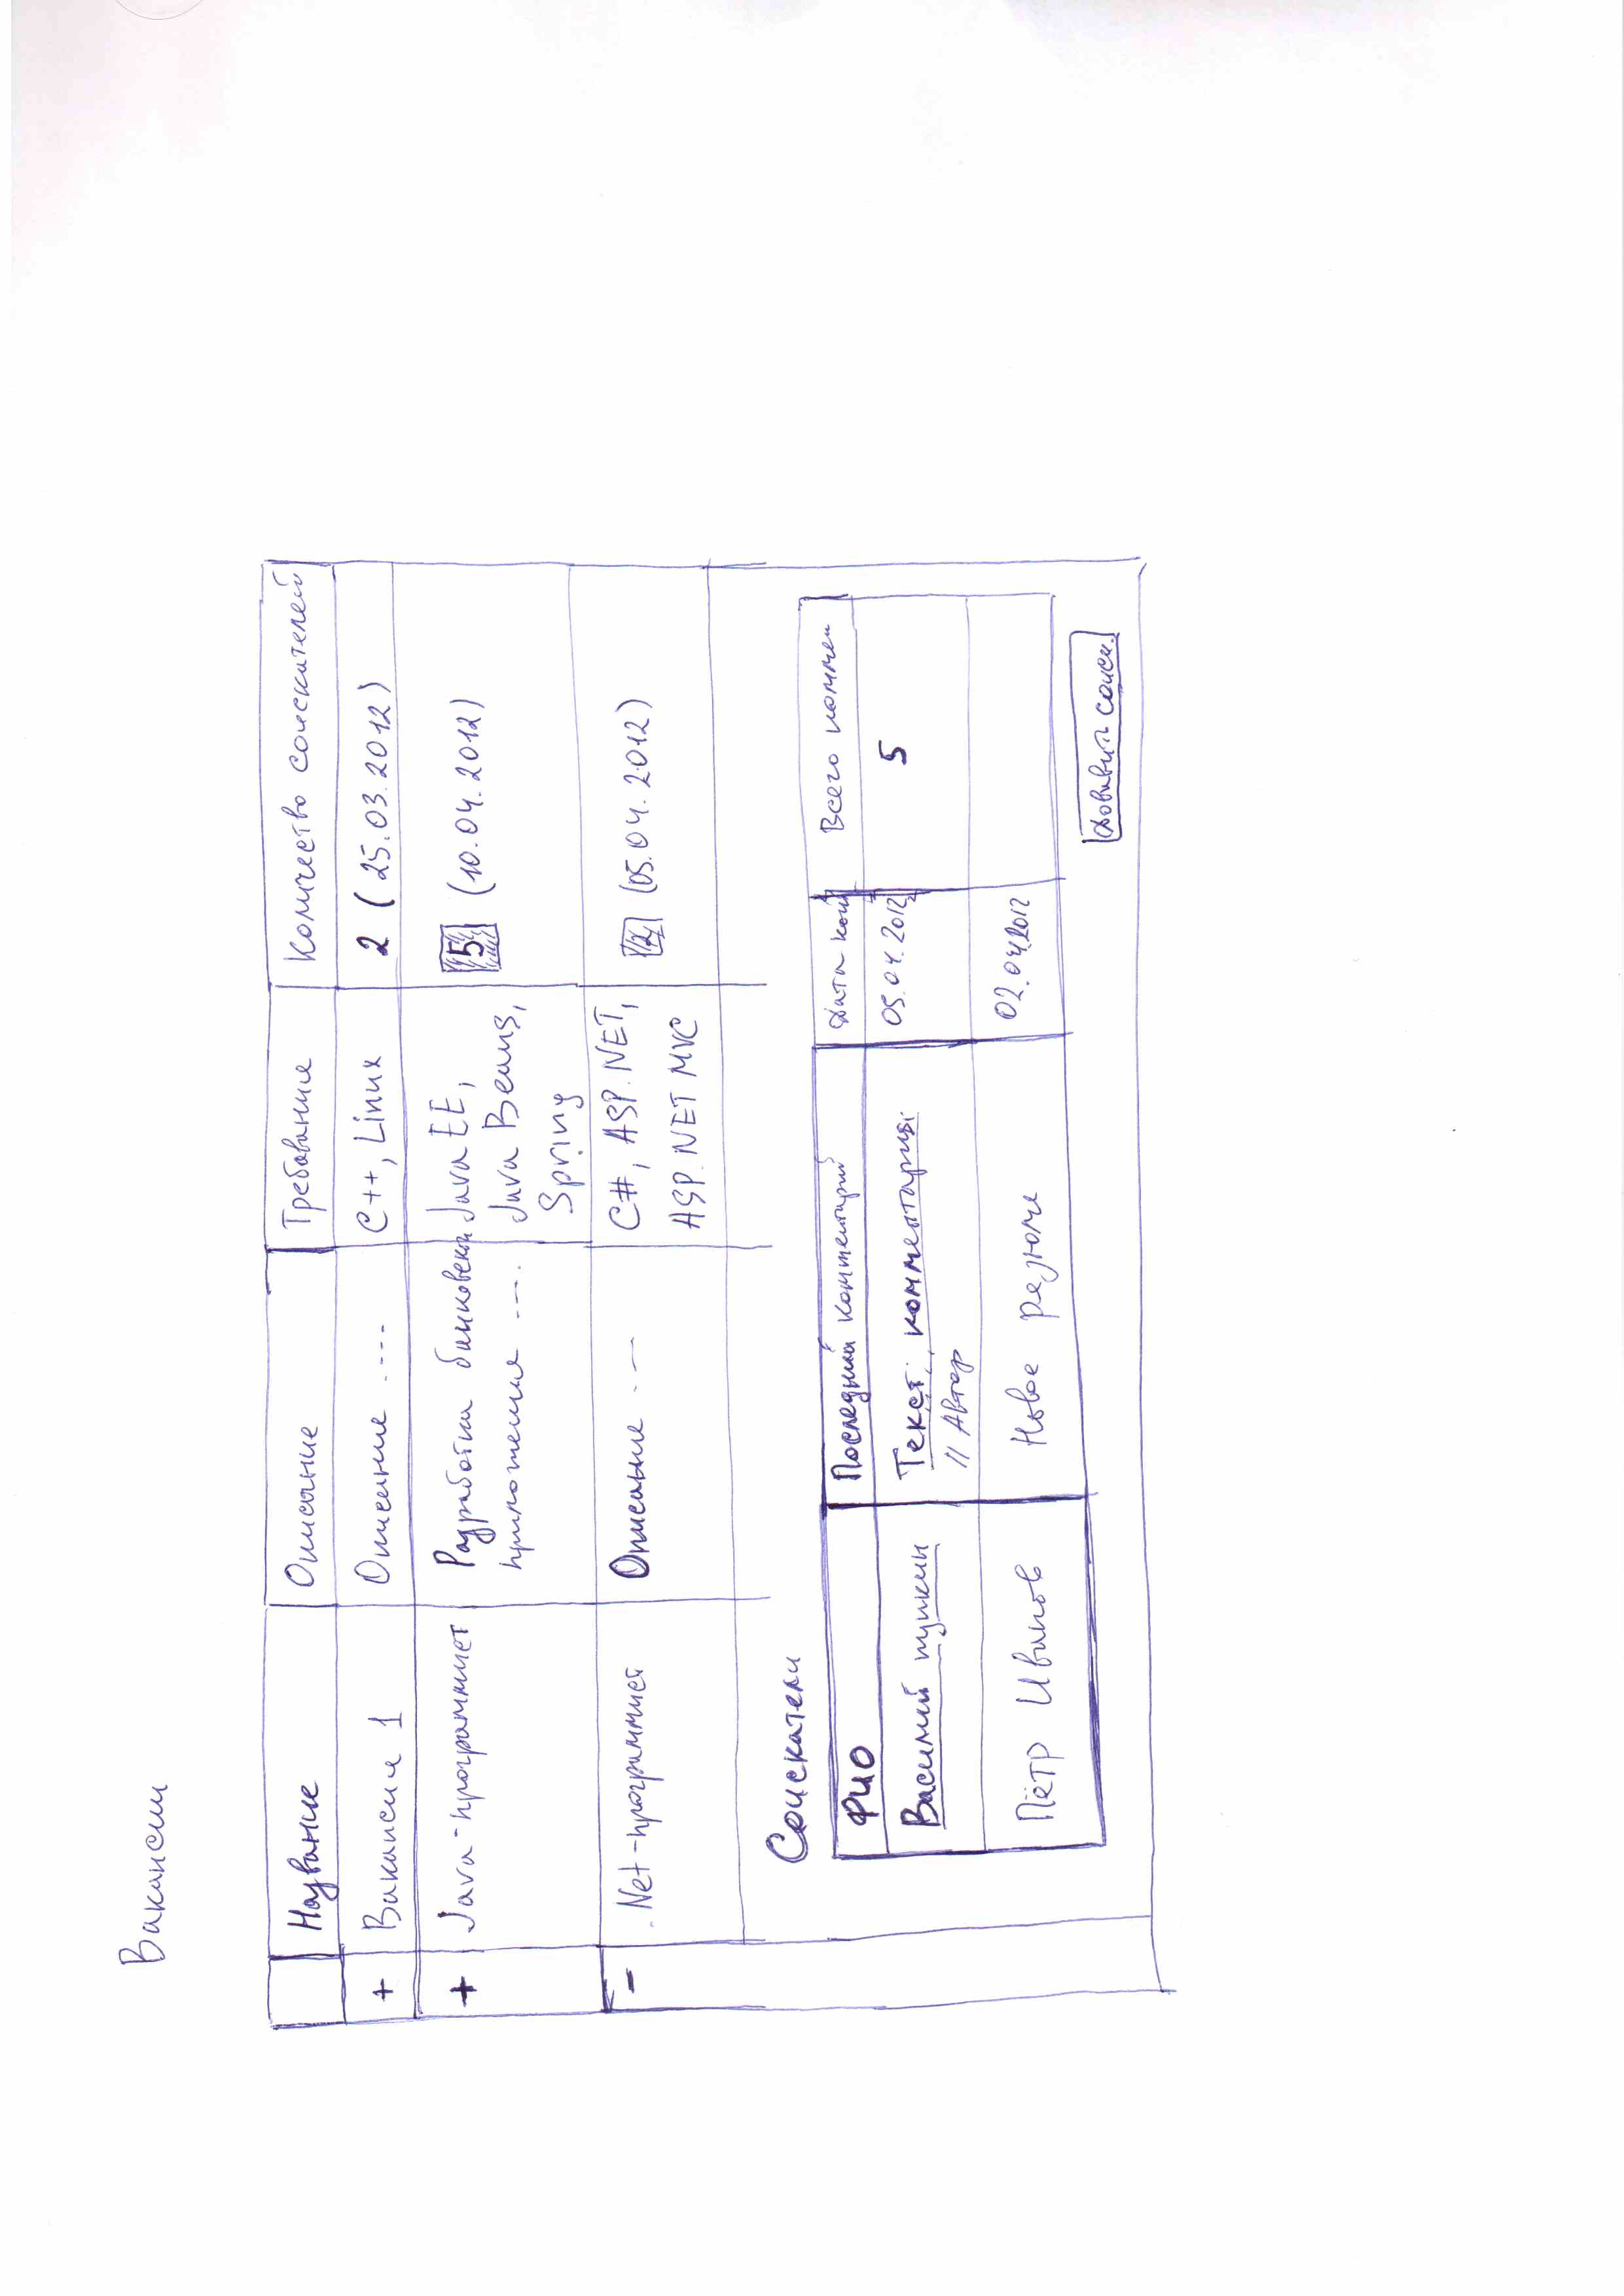 Вакансии
Название Описание Требования Количество соискателей
+ Вакансия 1 Описание .... C++, Linux 2 (25.03.2012)
+ Java-программист Разработка банковск Java EE, 5 (10.04.2012)
приложения ---. Java Beans,
Spring
- .Net-программист Описание .-- C#, ASP.NET, 2 (05.04.2012)
ASP.NET MVC
Соискатели
ФИО Последний комментарий Дата ком Всего коммен
Василий пупкин Текст комментария 05.04.2012 5
// Автор
Пётр Иванов Новое резюме 02.04.2012
Добавить соиск.